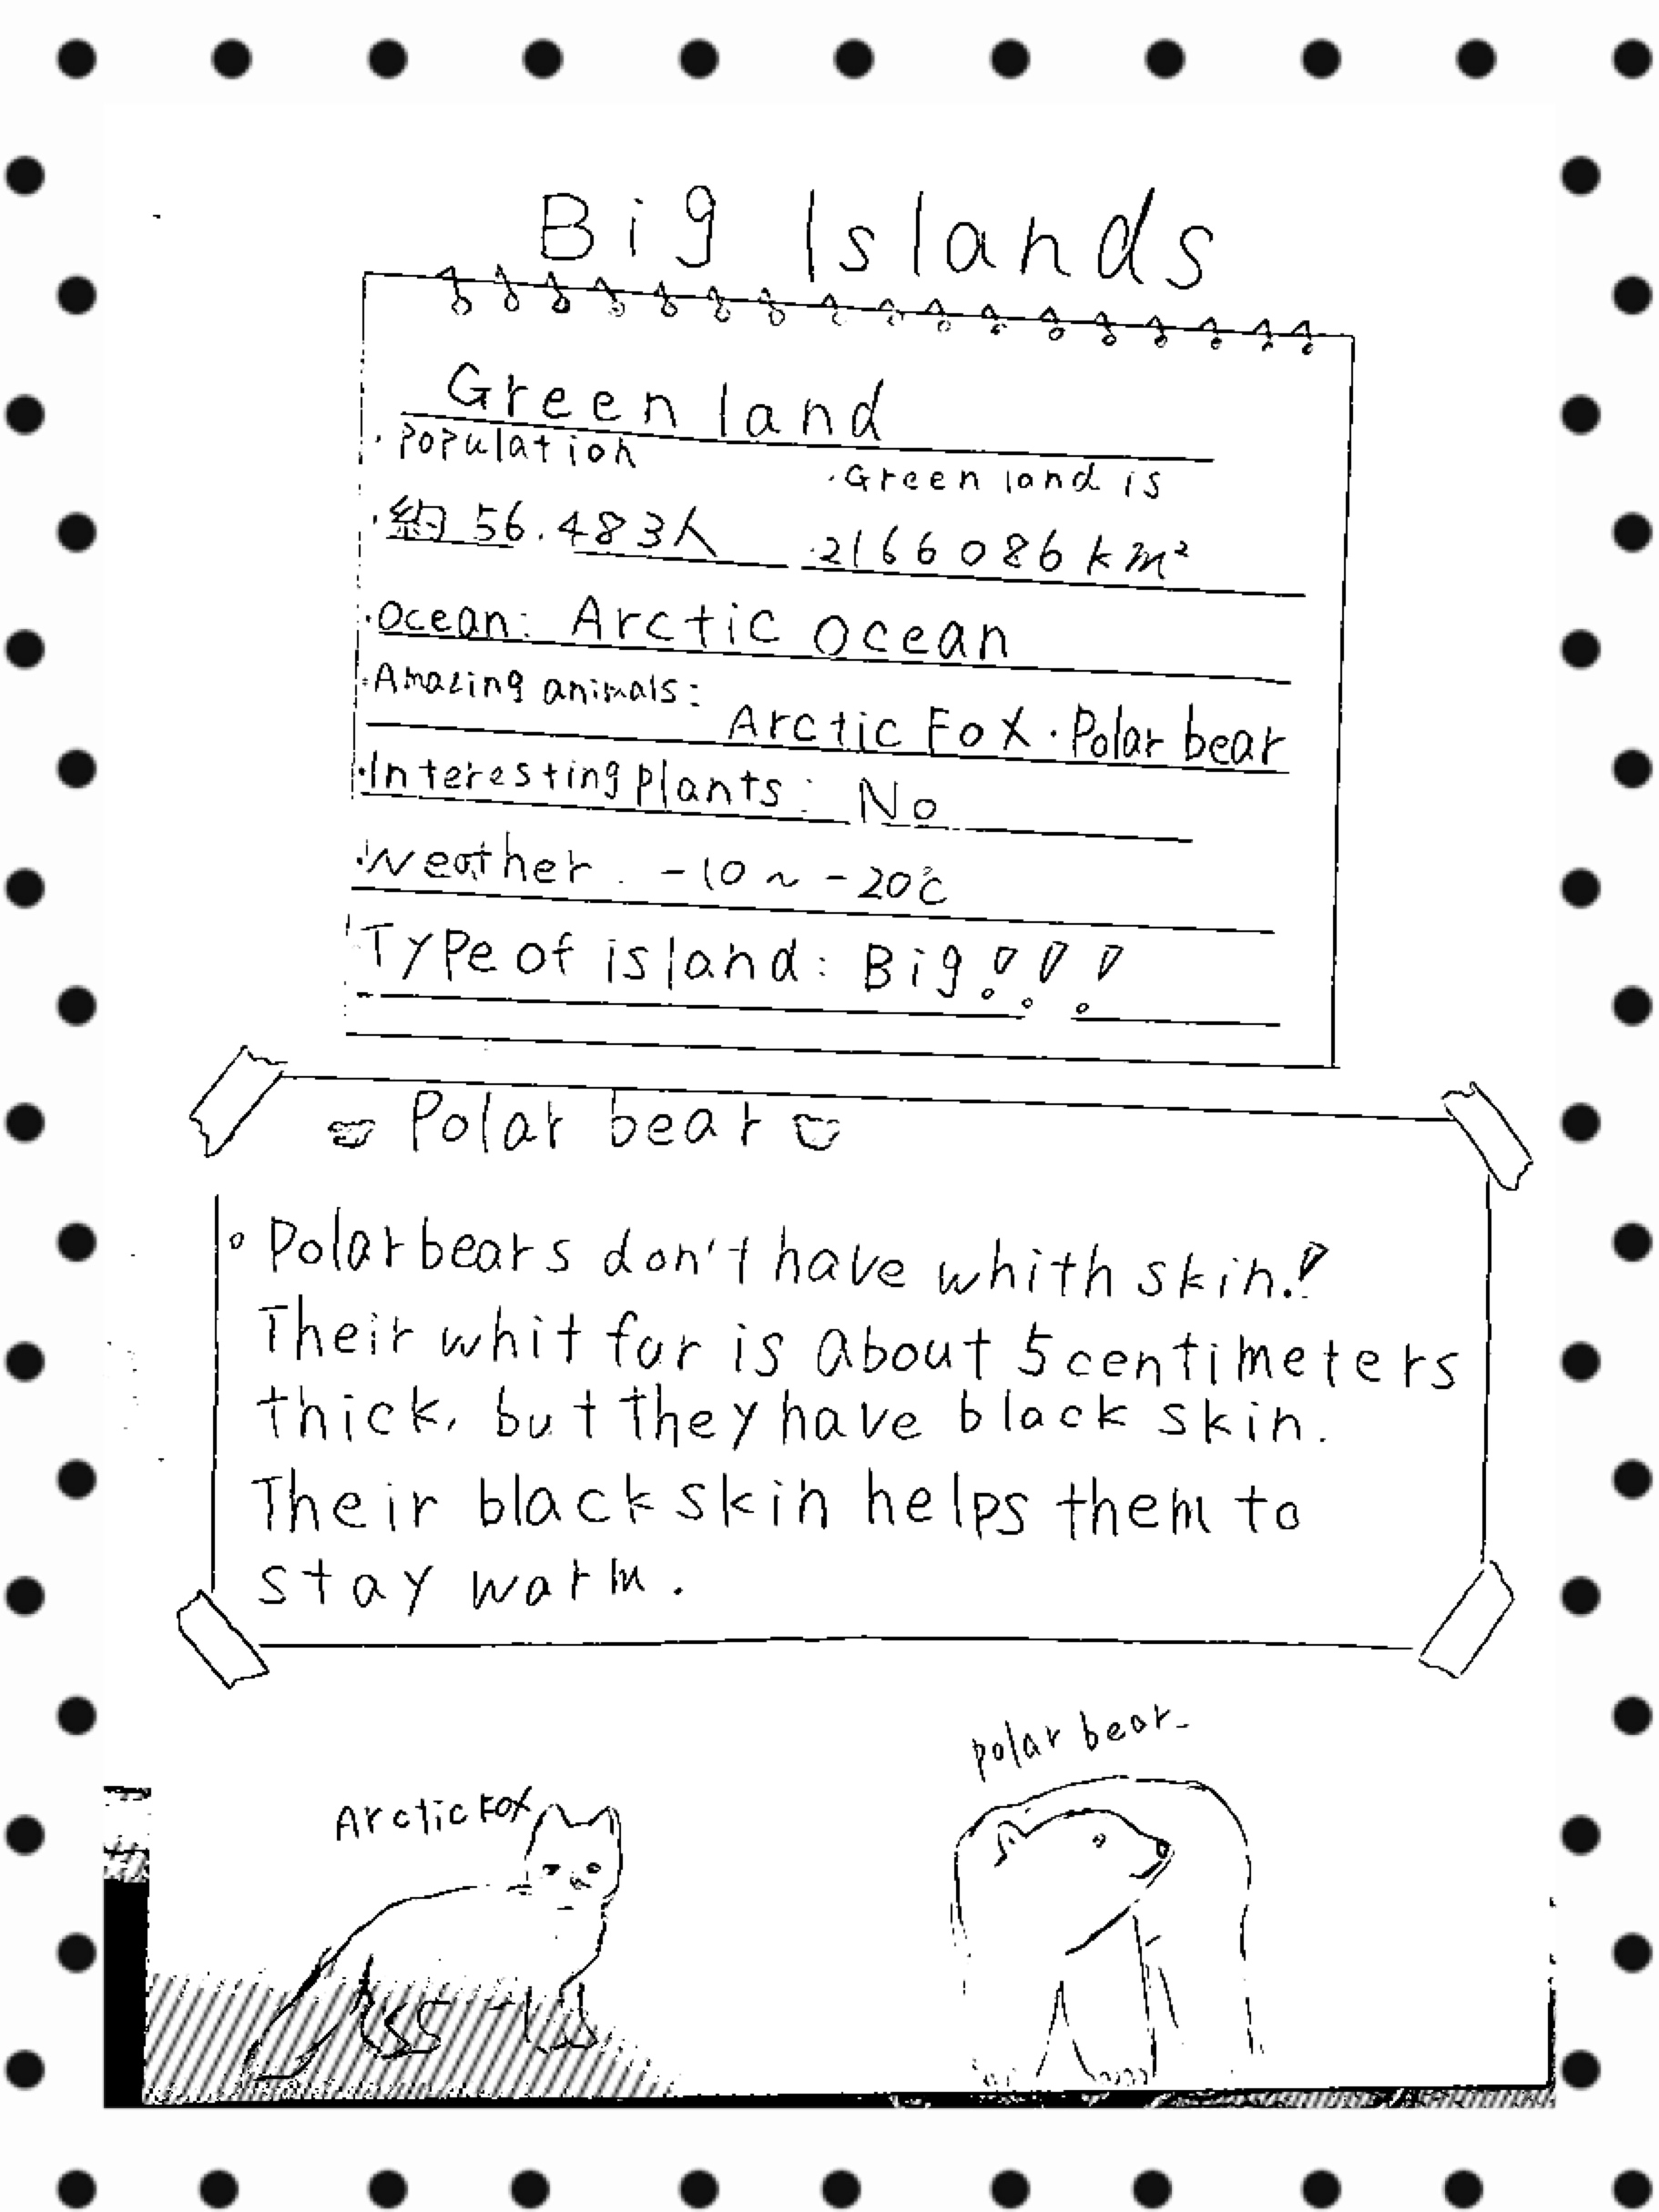 Big Islands
Green land
・Population
・Green land is
・約56.483人
・2166086km²
・Ocean: Arctic ocean
・Amazing animals:
Arctic Fox・Polar bear
・Interesting plants: No
・Weather: -10~-20℃
Type of island: Big!!!
Polar bear
・Polar bears don't have whith skin!
Their whit fur is about 5 centimeters
thick, but they have black skin.
Their black skin helps them to
stay warm.
polar bear
Arctic Fox